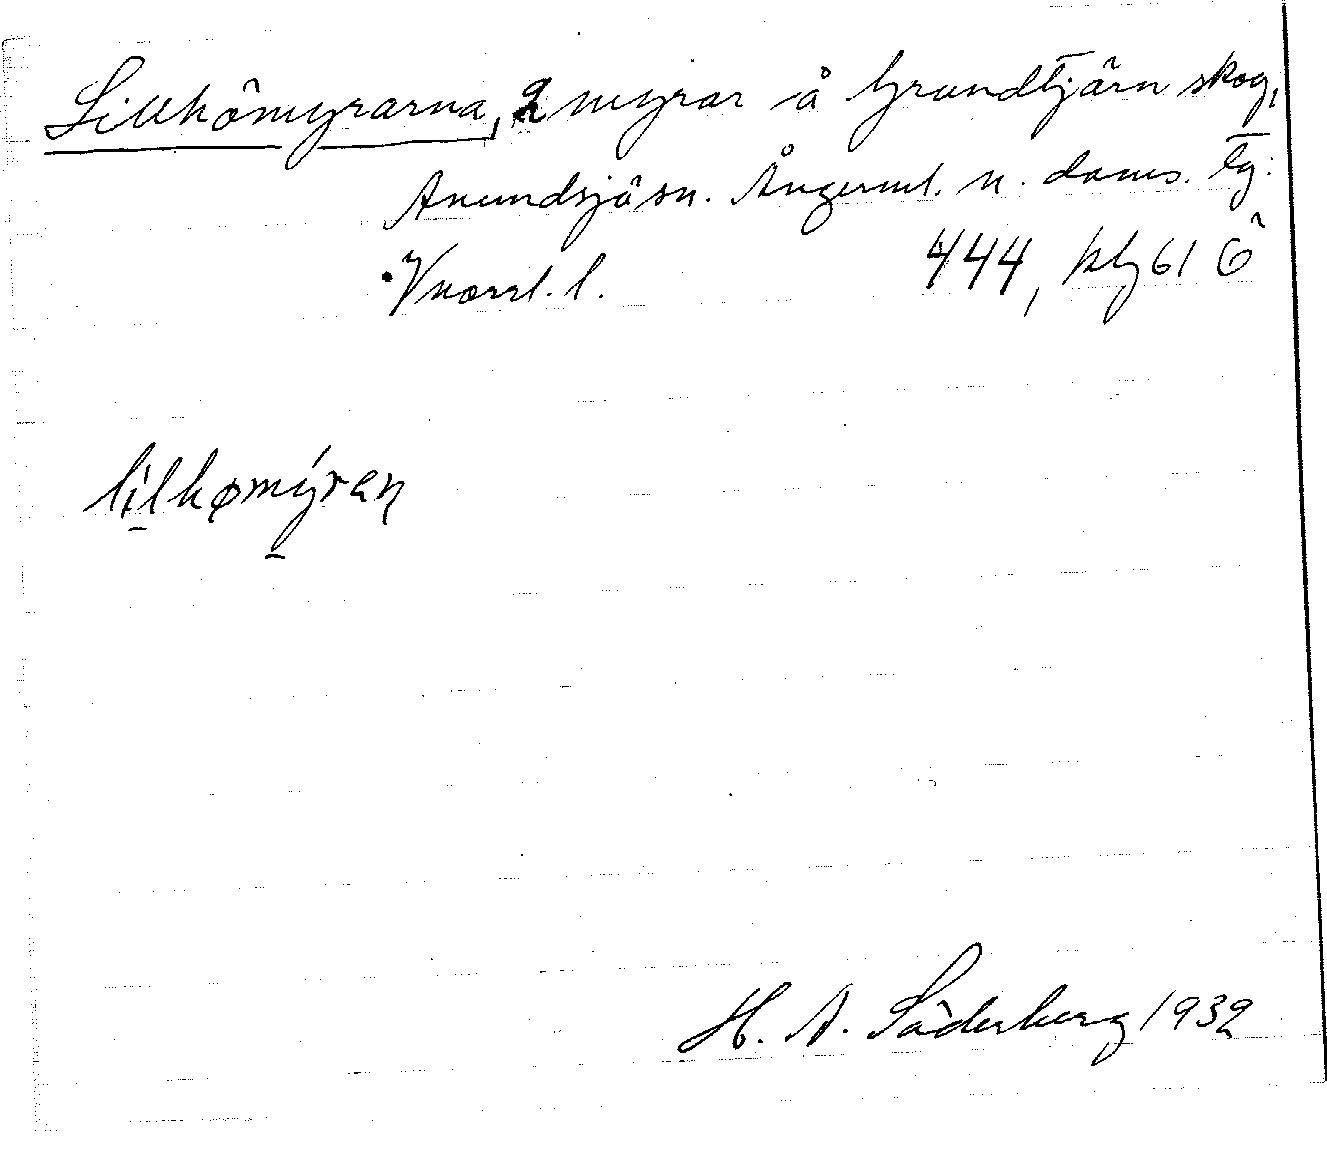 Lillhömyrarna, 2 myrar å Grundtjärn skog,
Anundsjö sn. Ångerml. n. doms. tg:
Vnorrl. l. 444, kbg 61 Ö
lilhømýran
H. A. Söderberg 1932